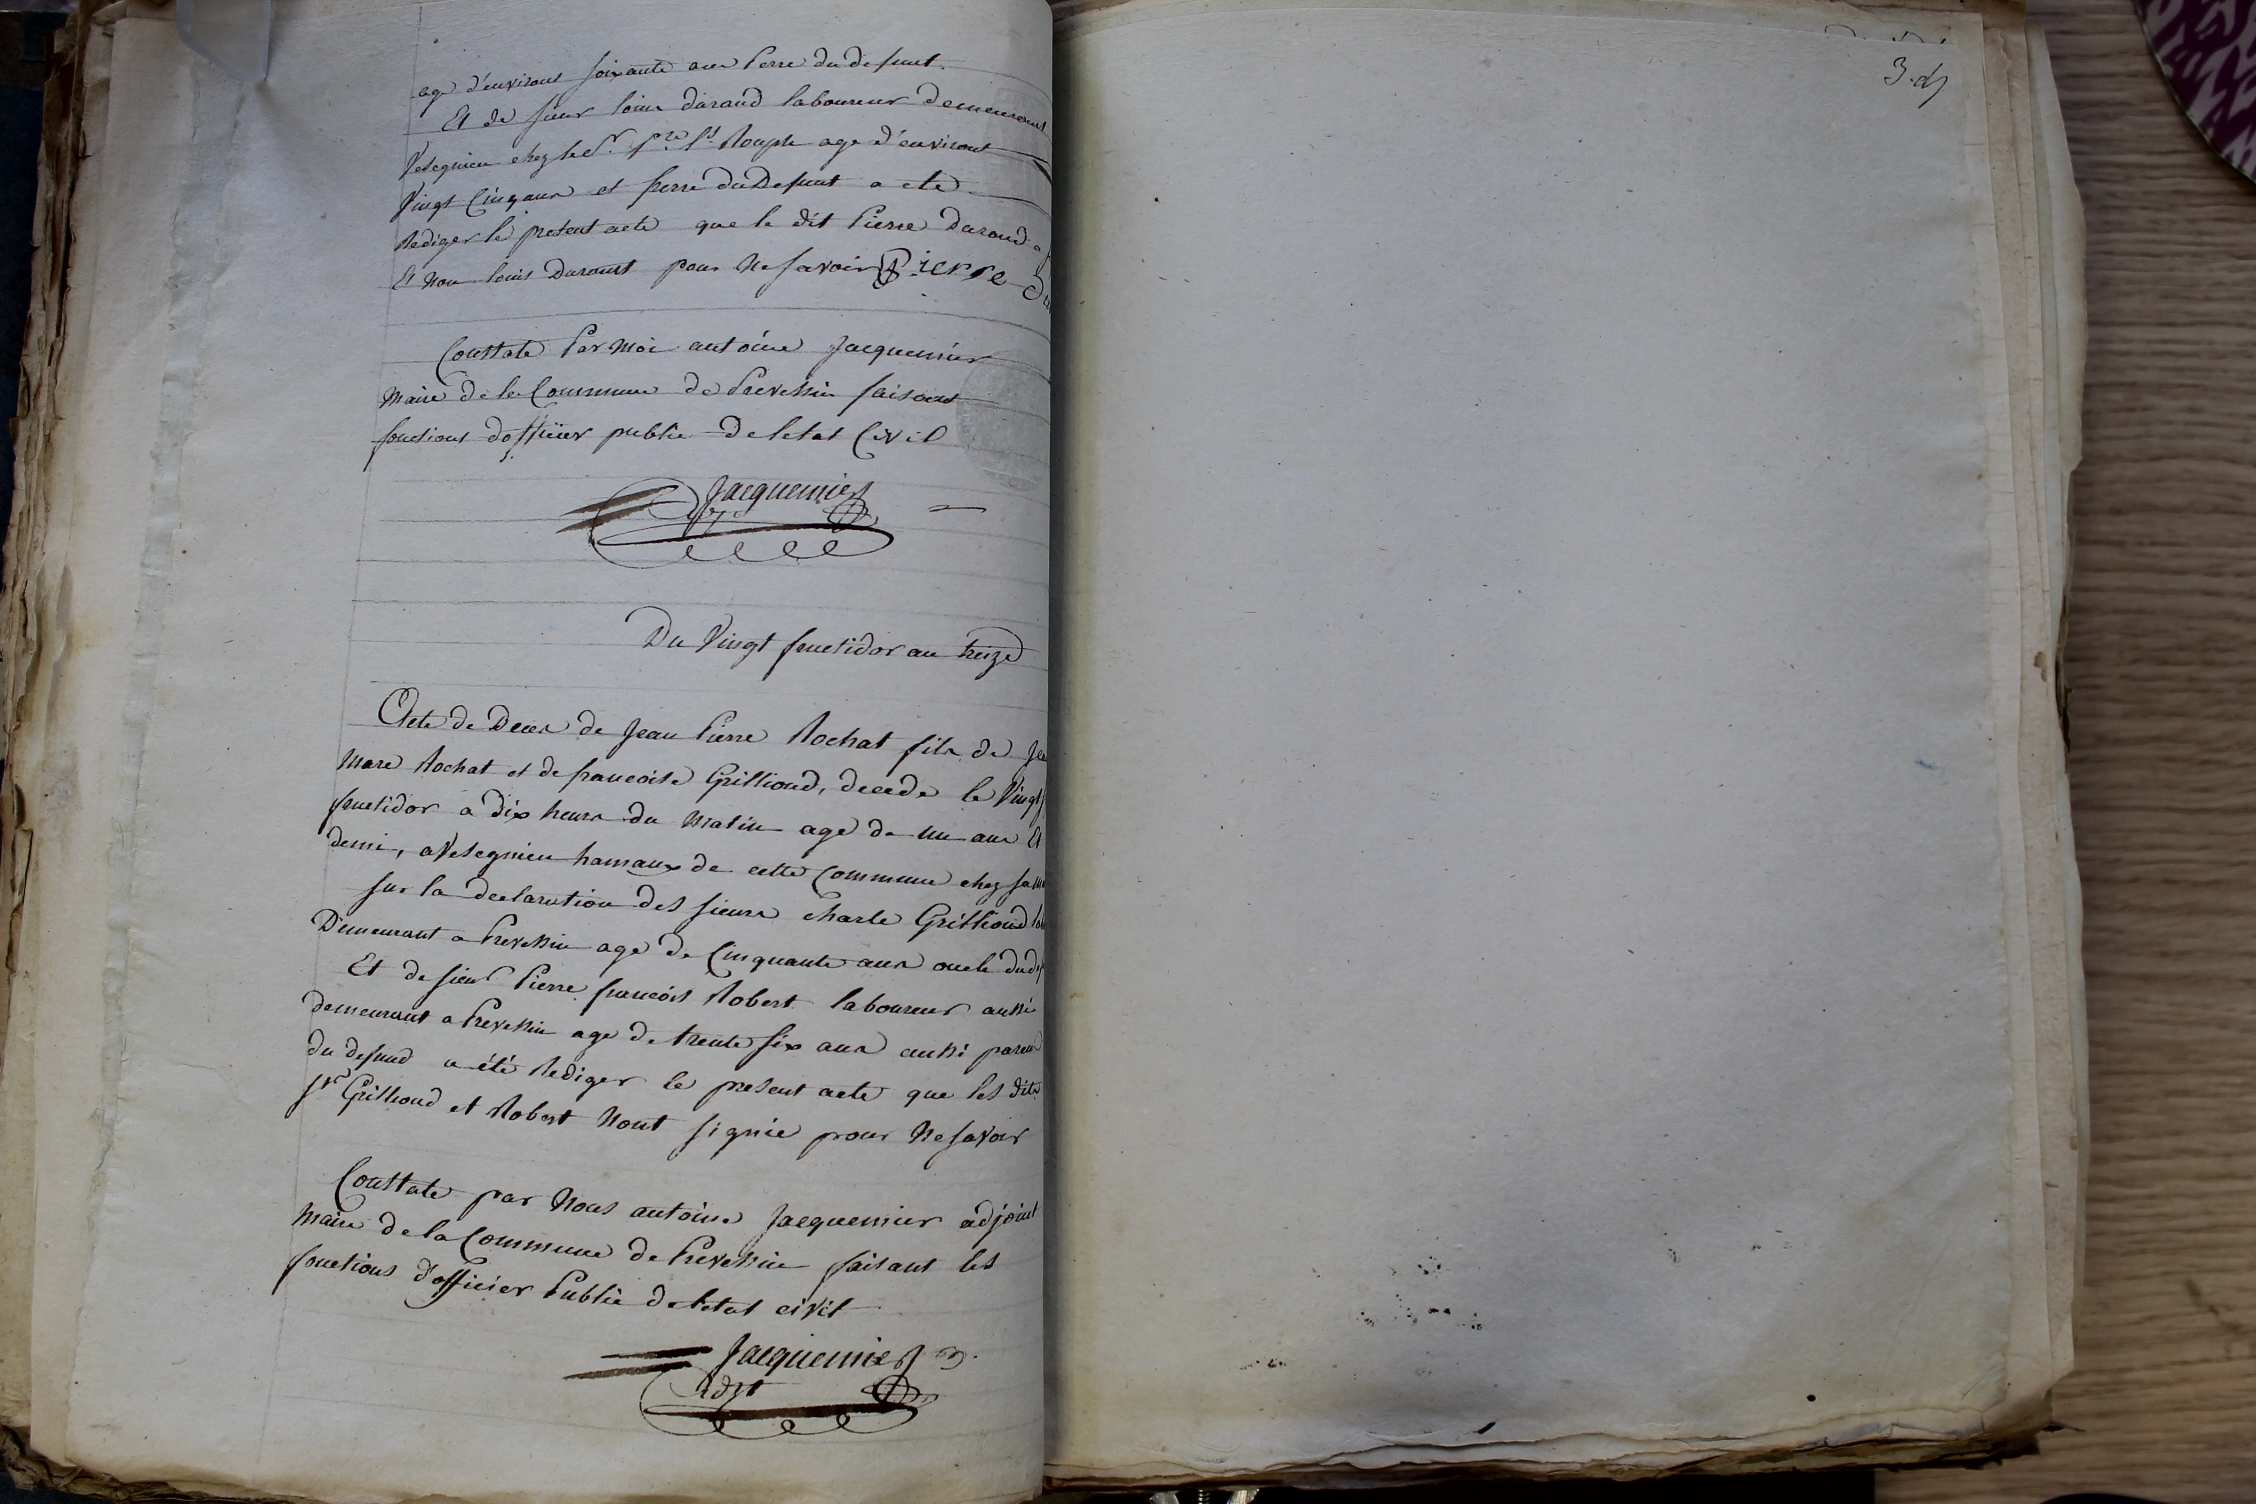 age d'environt soixante ans Perre du defunt
Et de sieur louis durand laboureur demeurant
Vesegnieu chez le Sr. age d'environt
Vingt Cinq ans et frerre du Defunt a ete
Rediger le présent acte que le dit Pierre Durand a
Et Non louis Durant pour Ne savoir Pierre
Consttate Par Moi antoine Jacquemier
Maire de la Commune de Prevessin faisant
fonctions d'officier public de letat Civil
Jacquemier
Du Vingt fructidor an treize
Acte de Deces de Jean Pierre Rochat fils de
Marc Rochat et de francoise Grilliond, decede le Vingt
fructidor a dix heures du Matin age de un ans Et
demi, a Vesegnieu hamaux de cette Commune chez
sur la declaration des sieurs Charle Grilliond
Demeurant a Prevessin age de Cinquante ans oncle du
Et de sieur Pierre francois Robert laboureur aussi
demeurant a Prevessin age de trente six ans aussi parent
du defund a été Rediger le present acte que les dits
Sr Grilliond et Robert Nont signié pour Ne savoir
Consttate par Nous antoine Jacquemier adjoint
Maire de la Commune de Prevessin faisant les
fonctions d'officier Public de letat civil
Jacquemier
adjt